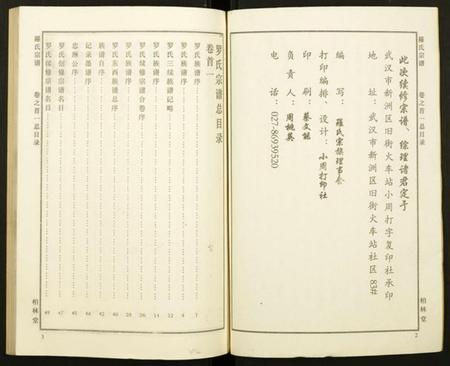 羅氏宗譜
卷之首一总目录
柏林堂
2
此次续修宗谱、综理诸君定予
武汉市新洲区旧街火车站小周打字复印社承印
地 址:武汉市新洲区旧街火车站社区83#
编 写:羅氏宗族理事会
打印编排、设计:小周打印社
印 刷:蔡文能
负责人:周桃英
电 话:027-86939520
罗氏宗谱总目录
卷首一
罗氏族谱序 1
罗氏族谱序 4
罗氏三续族谱记略 12
罗氏族谱序 14
罗氏续修宗谱合卷序 26
罗氏族谱序 28
罗氏东西族谱总序 40
族谱自序 42
记录墨谱序 44
忠琳公序 45
罗氏创修宗谱名目 47
罗氏续修宗谱名目 49
羅氏宗谱
卷之首一总目录
柏林堂
3